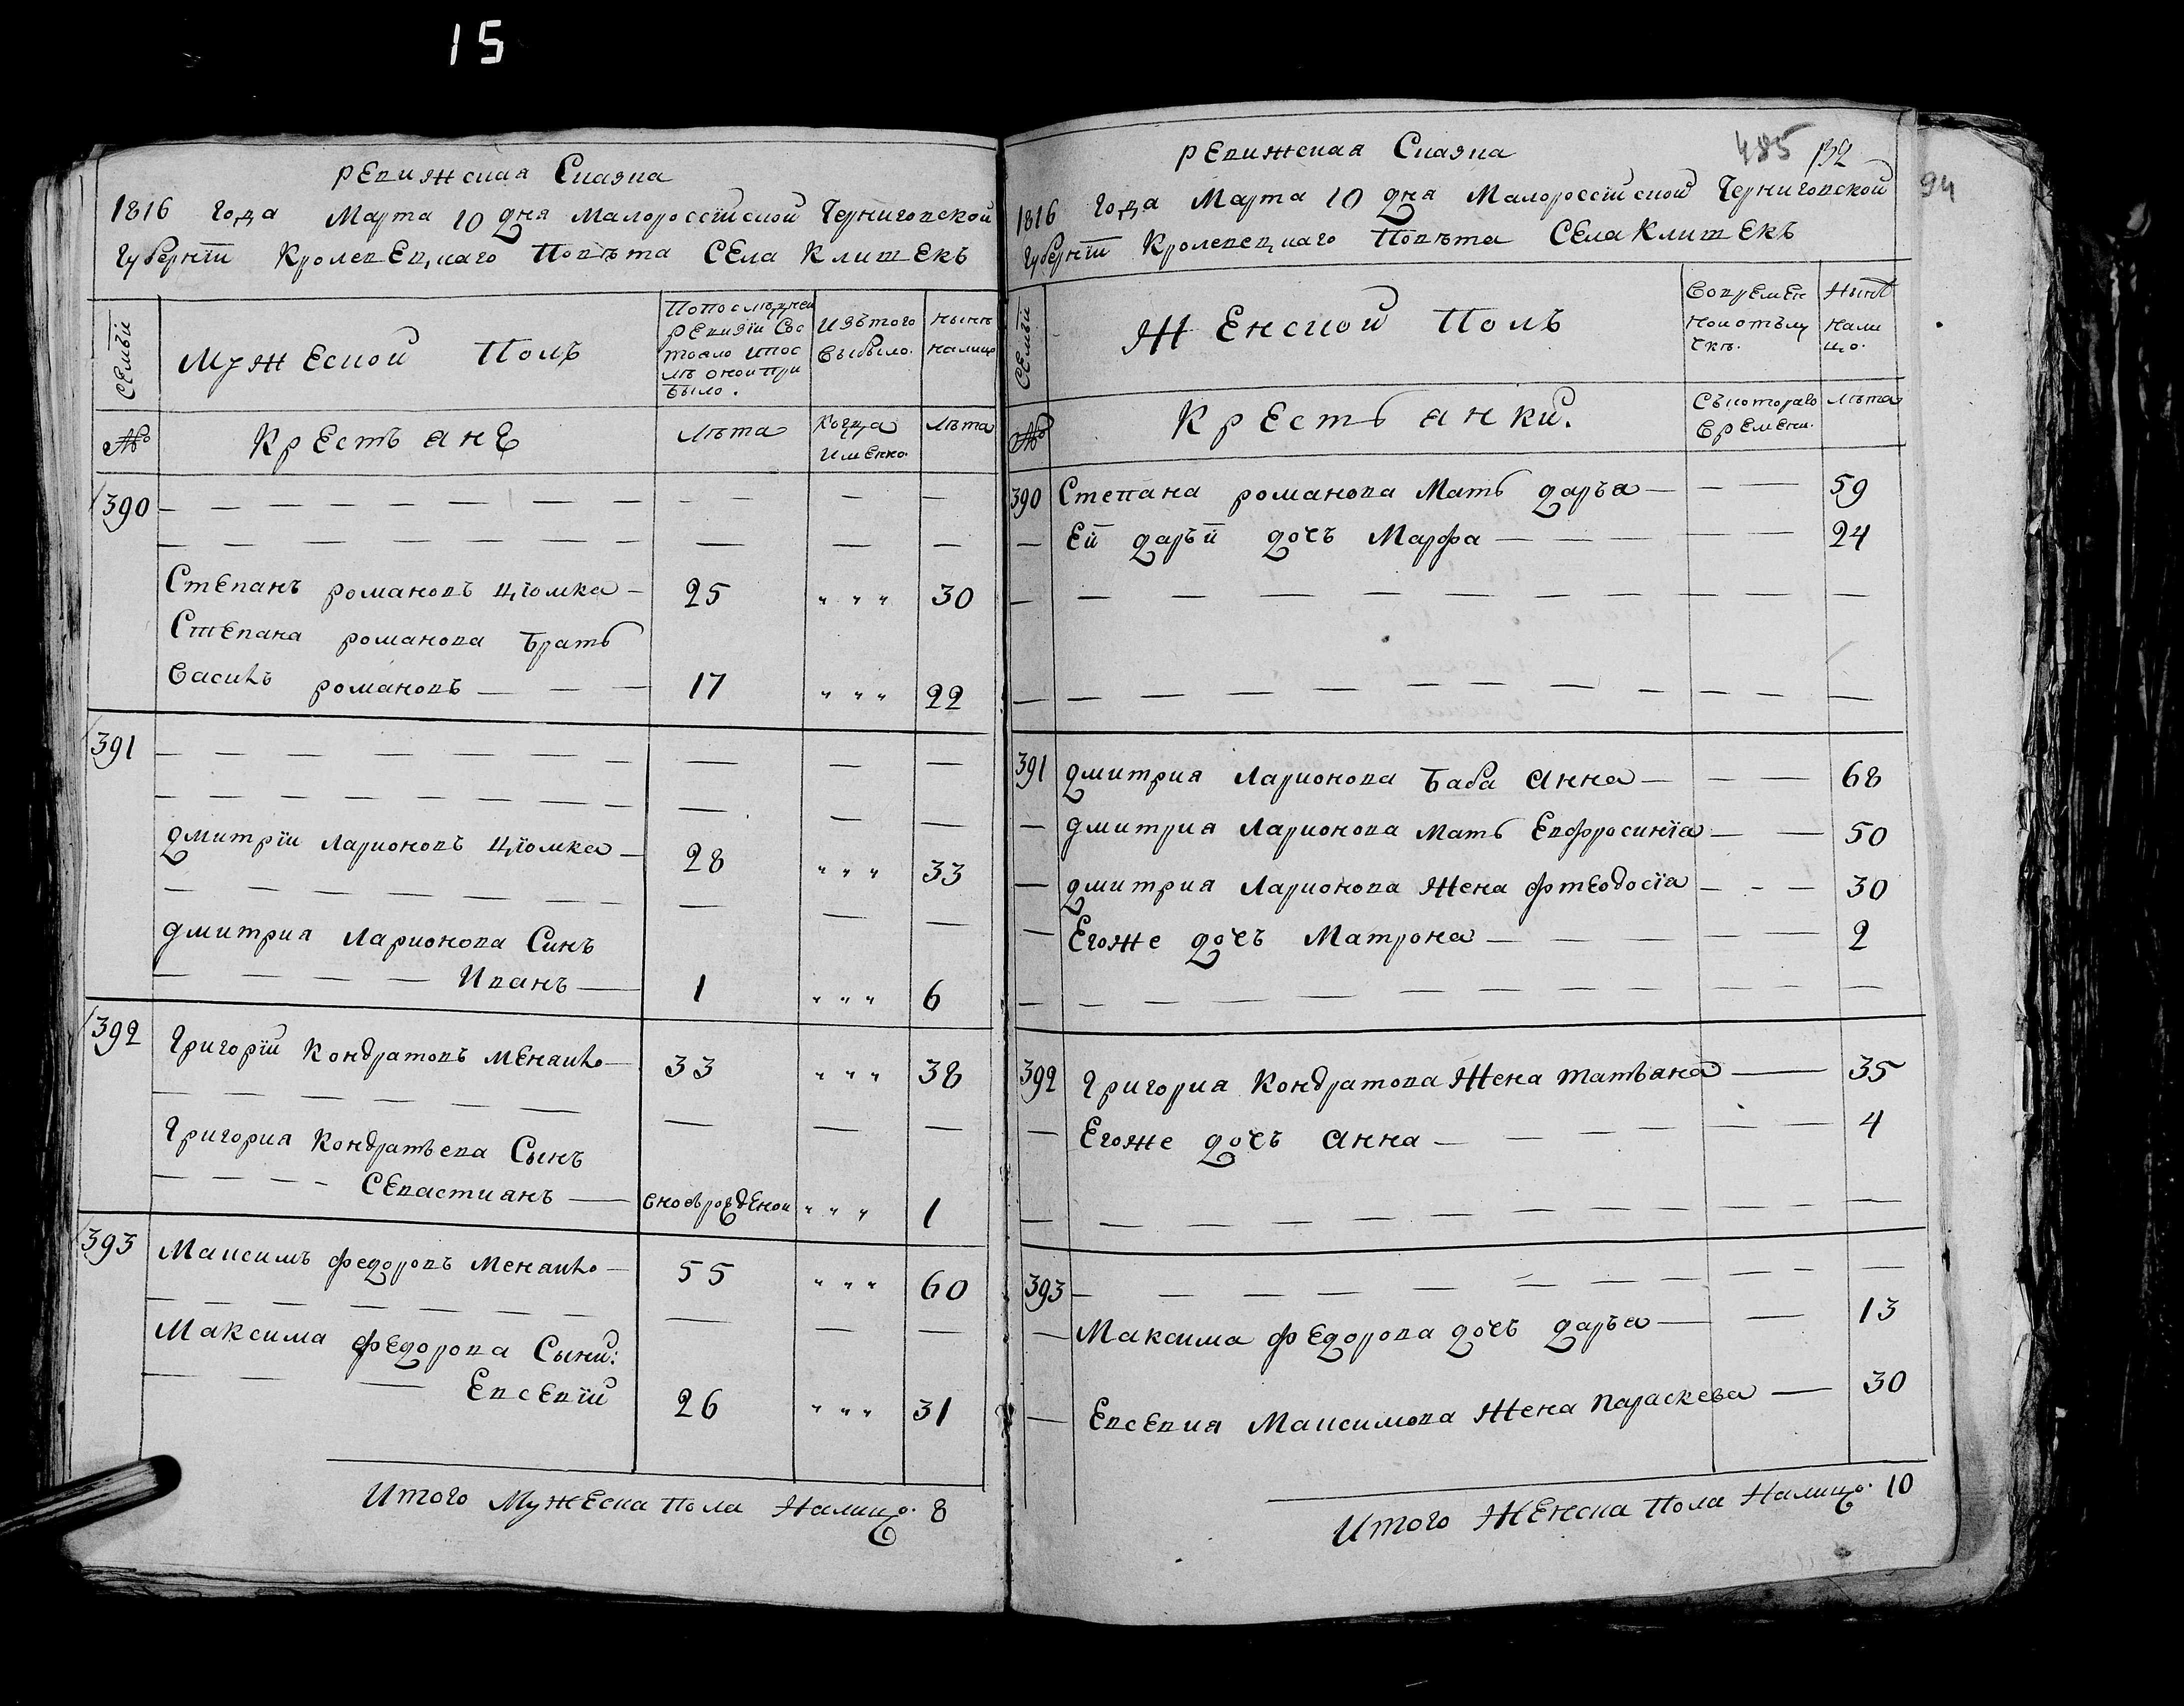 15
Ревижская Сказка
1816 года Марта 10 дня Малороссїйской Черниговской
Губернїи Кролевецкаго Повѣта Села Клишекъ
Семьи
Мужеской Полъ
По последней
ревизїи Сос
тояло и пос
лѣ оной при
было.
Изътого
выбыло.
Нынѣ
налицо
№
Крестьяне
Лѣта
Когда
Именно
Лѣта
390 — — — — — — — — — — —
— — — — — — — — — —
Степанъ романовъ Цїомка — 25 " " " 30
Степана романова братъ
Василь романовъ — — — 17 " " " 22
391 — — — — — — — — —
— — — — — — — — — — —
Дмитрїи Ларионовъ Цїомка — 28 " " " 33
— — — — — — — — — —
Дмитрия Ларионова Синъ
— — — — Иванъ — 1 " " " 6
392 Григорїй Кондратовъ Менаило — 33 " " " 38
— — — — — — — — — —
Григория Кондратьева Сынъ
— — — - Севастианъ — вновърожденой " " " 1
393 Максимъ Федоровъ Менаило — 55 " " " 60
— — — — — — — — — —
Максима Федорова Сыни:
— — — Евсевїй 26 " " " 31
Итого Мужеска Пола Налицо. 8
Ревижская Сказка
485 132
94
1816 года Марта 10 дня Малороссїйской Черниговской
Губернїи Кролевецкаго Повѣта Села Клишекъ
Семьи
Женской Полъ
Вовремен
ной отълу
чкѣ.
Нынѣ
нали
цо.
№
Крестьянки.
Съкотораго
времени.
Лѣта
390 Степана романова Мать Дарья — — — 59
— Ей Дарьи дочъ Марфа — — — — — — 24
— — — — — — — — — — —
— — — — — — — — — — —
391 Дмитрия Ларионова Баба Анна — — — 68
— Дмитрия Ларионова Мать Евфросинїа — — 50
— Дмитрия Ларионова Жена Фтеодосїа — - — 30
— Егоже дочъ Матрона — — — — — — 2
— — — — — — — — — — — —
392 Григория Кондратова Жена Татьана — 35
— Егоже дочъ Анна — — — — — — 4
— — — — — — — — — — — —
393 — — — — — — — — — — —
— Максима Федорова дочъ Дарьа — — 13
— Евсевия Максимова Жена Параскева — 30
Итого Женска Пола Налицо. 10